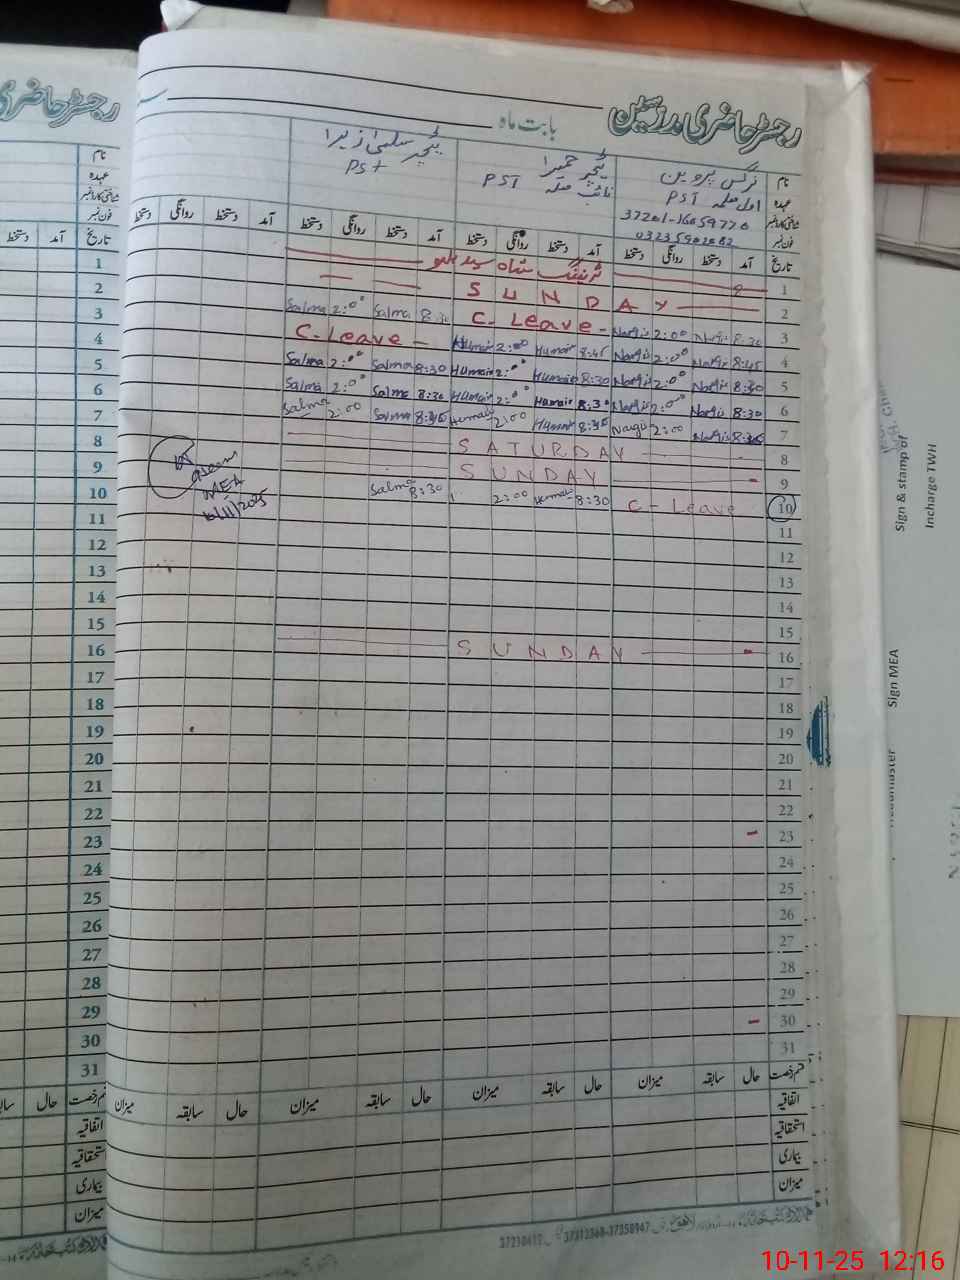 رجسٹر حاضری مدرسین
بابت ماہ
نام نرگس پروین ٹیچر حمیرا ٹیچر سلمیٰ زہرا
عہدہ اول معلمہ PST نائب معلمہ PST PST
شناختی کارڈ نمبر
فون نمبر
تاریخ آمد دستخط روانگی دستخط آمد دستخط روانگی دستخط آمد دستخط روانگی دستخط آمد دستخط روانگی دستخط
1
2 SUNDAY
3 Nargis 8:30 Nargis 2:00 C. Leave Salma 8:30 Salma 2:00
4 Nargis 8:45 Nargis 2:00 Humair 8:45 Humair 2:00 C. Leave
5 Nargis 8:30 Nargis 2:00 Humair 8:30 Humair 2:00 Salma 8:30 Salma 2:00
6 Nargis 8:30 Nargis 2:00 Humair 8:30 Humair 2:00 Salma 8:30 Salma 2:00
7 Nargis 8:45 Nargis 2:00 Humair 8:45 Humair 2:00 Salma 8:45 Salma 2:00
8 SATURDAY
9 SUNDAY
10 C-Leave Humair 8:30 2:00 Salma 8:30
MEA
10/11/2025
11
12
13
14
15
16 SUNDAY
17
18
19
20
21
22
23
24
25
26
27
28
29
30
31
قسم رخصت حال سابقہ میزان حال سابقہ میزان حال سابقہ میزان حال سابقہ میزان
اتفاقیہ
استحقاقیہ
بیماری
میزان
رجسٹر حاضری
نام
عہدہ
شناختی کارڈ نمبر
فون نمبر
تاریخ آمد دستخط
1
2
3
4
5
6
7
8
9
10
11
12
13
14
15
16
17
18
19
20
21
22
23
24
25
26
27
28
29
30
31
حال
اتفاقیہ
استحقاقیہ
بیماری
میزان
Sign & stamp of
Incharge TWH
Sign MEA
10-11-25 12:16